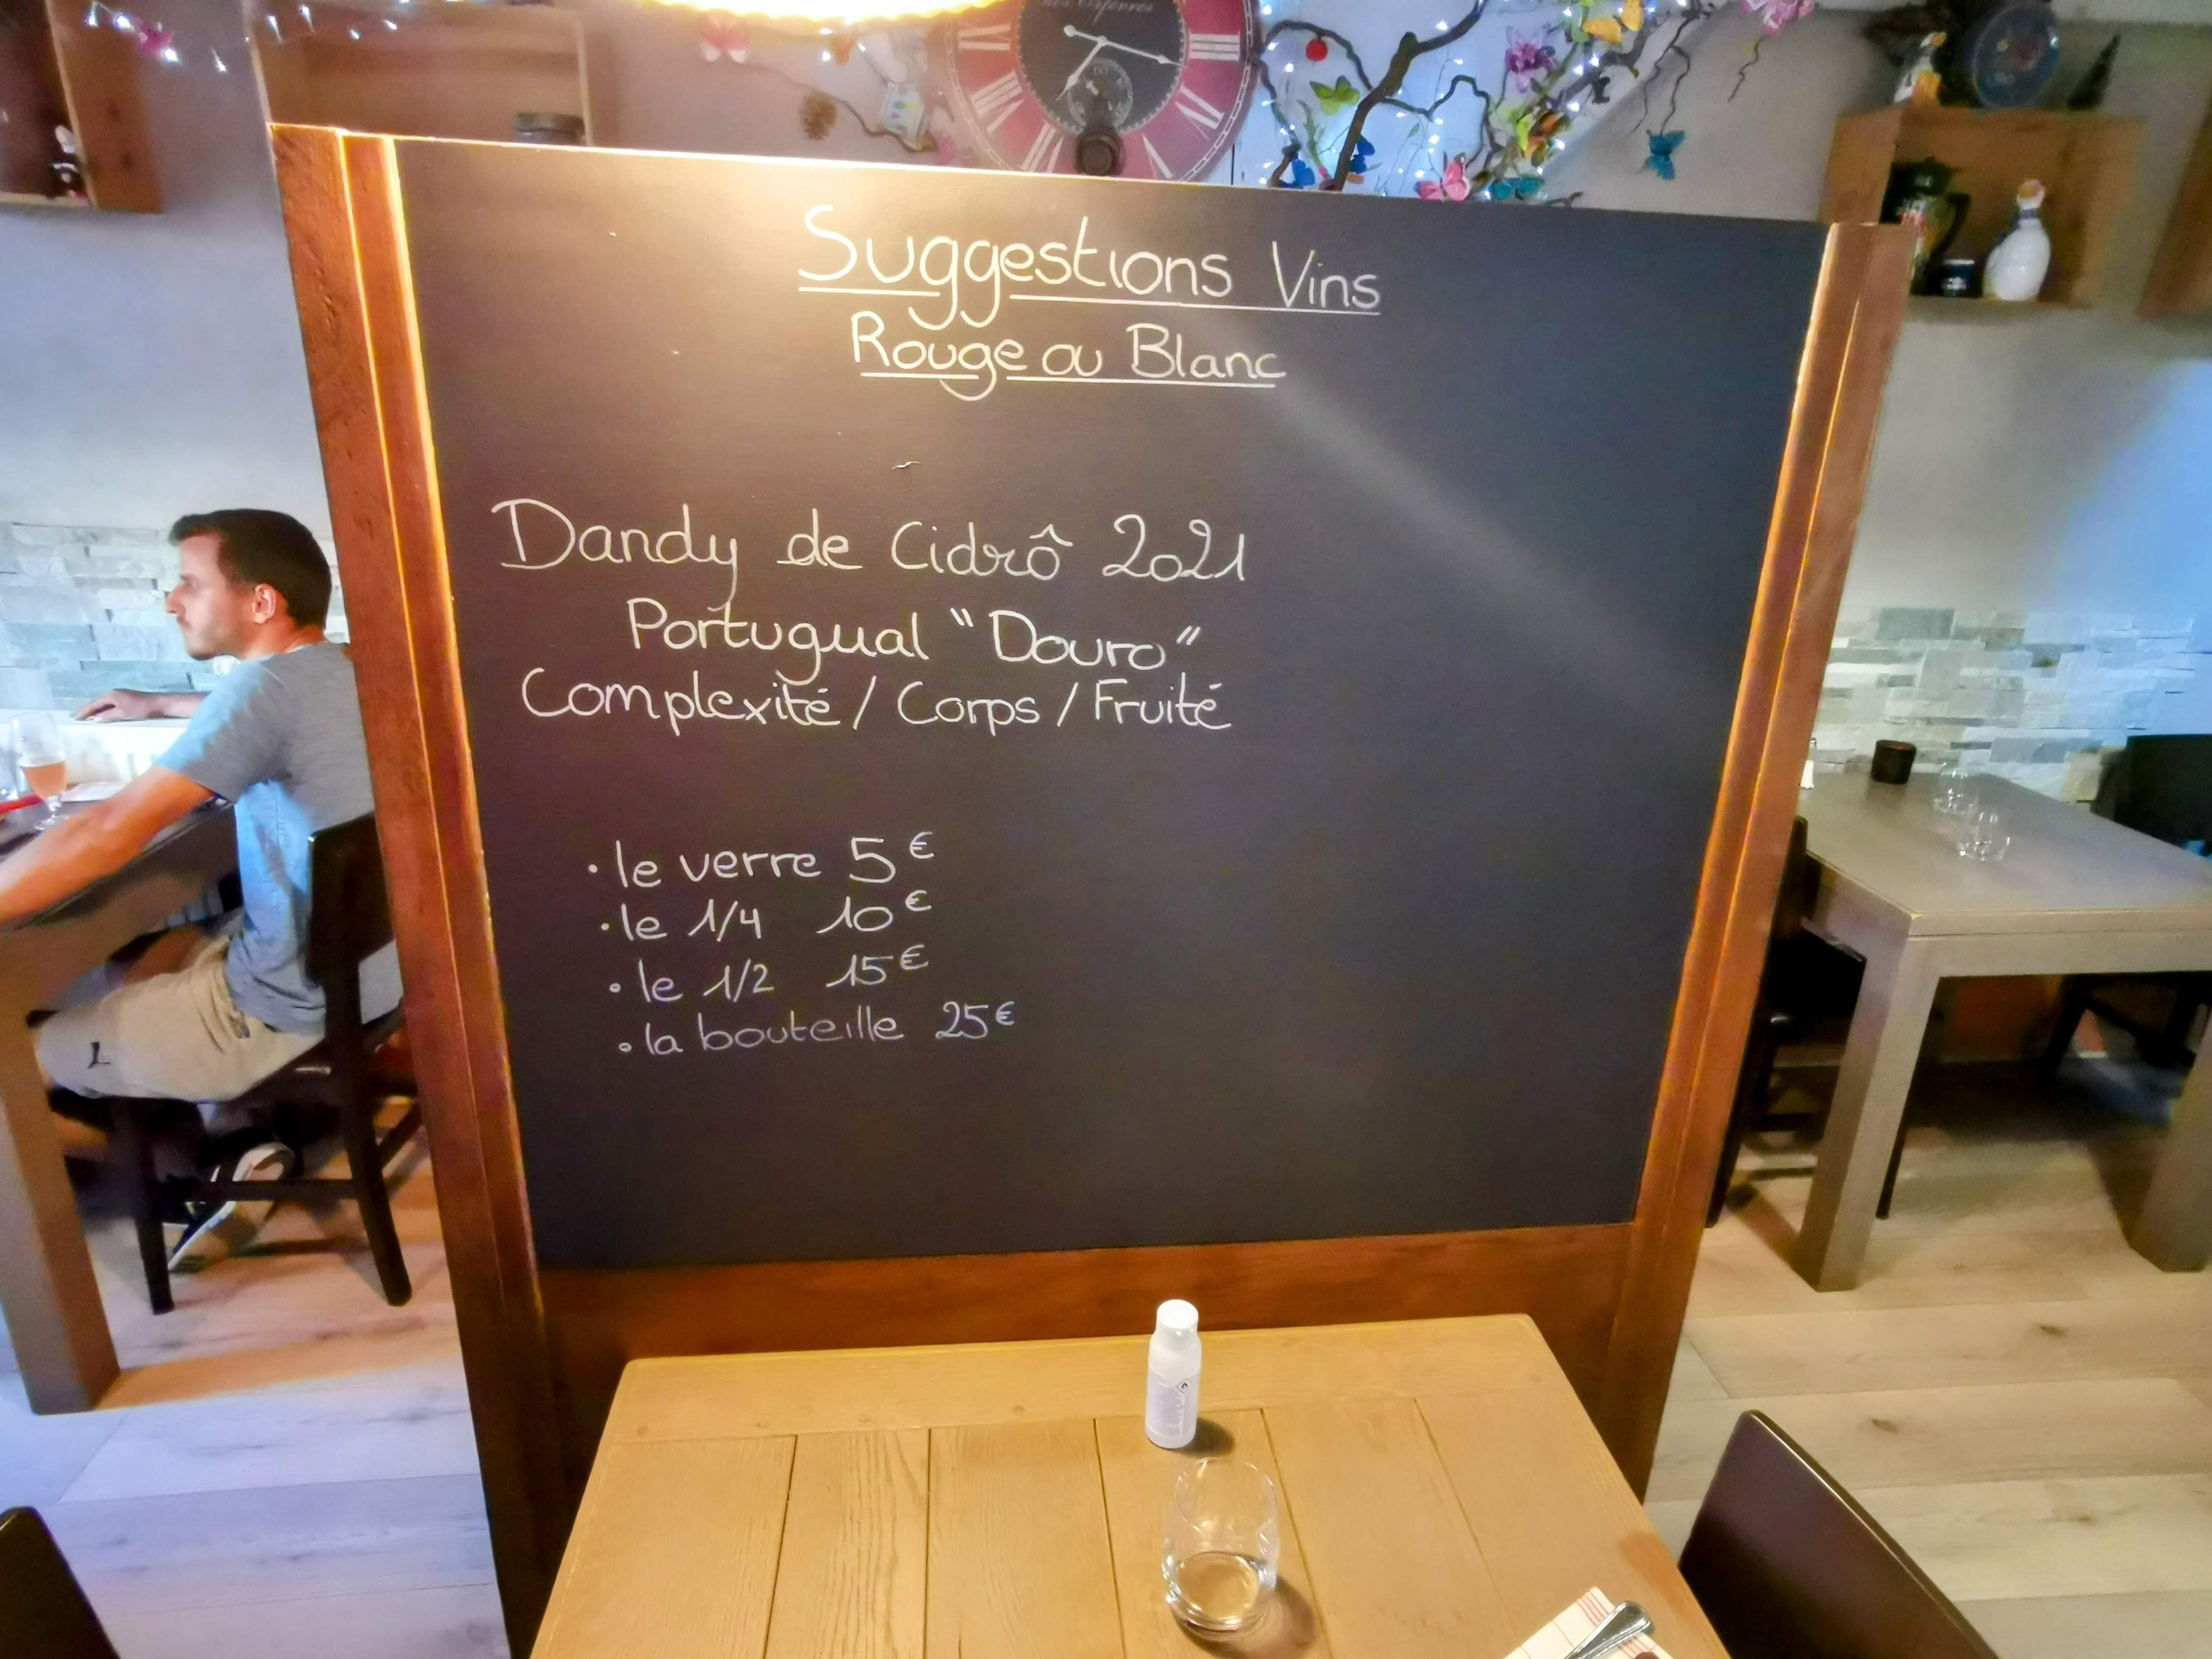 Suggestions Vins
Rouge ou Blanc
Dandy de Cidrô 2021
Portugual "Douro"
Complexité / Corps / Fruité
• le verre 5€
• le 1/4 10€
• le 1/2 15€
• la bouteille 25€